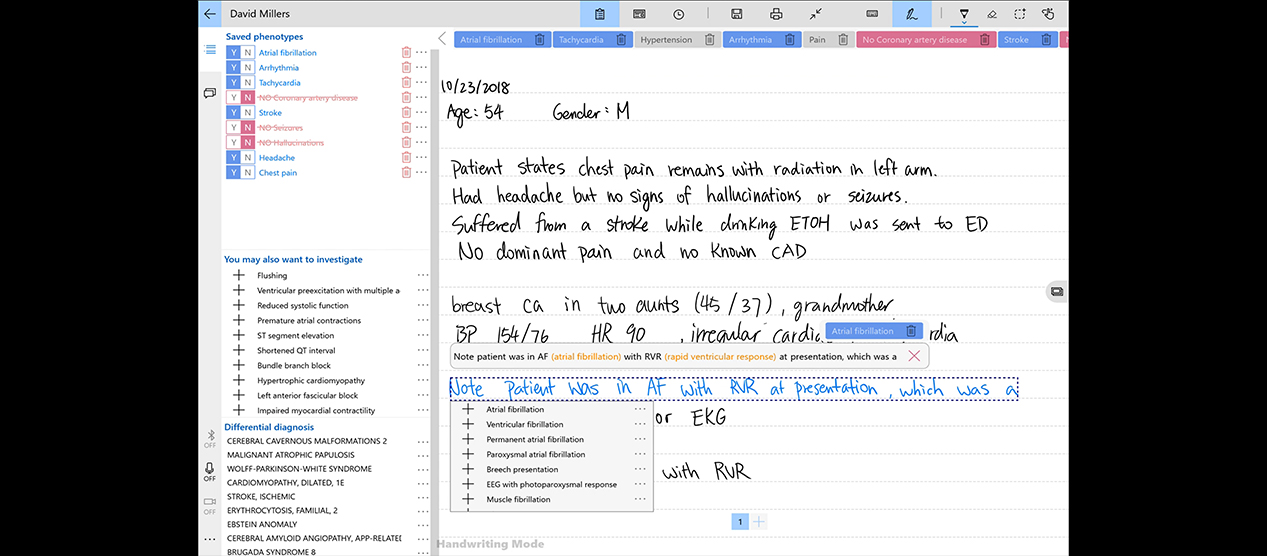 David Millers
Saved phenotypes
Y N Atrial fibrillation
Y N Arrhythmia
Y N Tachycardia
Y N NO Coronary artery disease
Y N Stroke
Y N NO Seizures
Y N NO Hallucinations
Y N Headache
Y N Chest pain
You may also want to investigate
Flushing
Ventricular preexcitation with multiple a
Reduced systolic function
Premature atrial contractions
ST segment elevation
Shortened QT interval
Bundle branch block
Hypertrophic cardiomyopathy
Left anterior fascicular block
Impaired myocardial contractility
Differential diagnosis
CEREBRAL CAVERNOUS MALFORMATIONS 2
MALIGNANT ATROPHIC PAPULOSIS
WOLFF-PARKINSON-WHITE SYNDROME
CARDIOMYOPATHY, DILATED, 1E
STROKE, ISCHEMIC
ERYTHROCYTOSIS, FAMILIAL, 2
EBSTEIN ANOMALY
CEREBRAL AMYLOID ANGIOPATHY, APP-RELATED
BRUGADA SYNDROME 8
OFF
OFF
OFF
Atrial fibrillation Tachycardia Hypertension Arrhythmia Pain No Coronary artery disease Stroke
10/23/2018
Age: 54 Gender: M
Patient states chest pain remains with radiation in left arm.
Had headache but no signs of hallucinations or seizures.
Suffered from a stroke while drinking ETOH was sent to ED
No dominant pain and no known CAD
breast ca in two aunts (45/37), grandmother
Atrial fibrillation
BP 154/76 HR 90, irregular cardia rdia
Note patient was in AF (atrial fibrillation) with RVR (rapid ventricular response) at presentation, which was a
Note patient was in AF with RVR at presentation, which was a
or EKG
with RVR
Atrial fibrillation
Ventricular fibrillation
Permanent atrial fibrillation
Paroxysmal atrial fibrillation
Breech presentation
EEG with photoparoxysmal response
Muscle fibrillation
1
Handwriting Mode